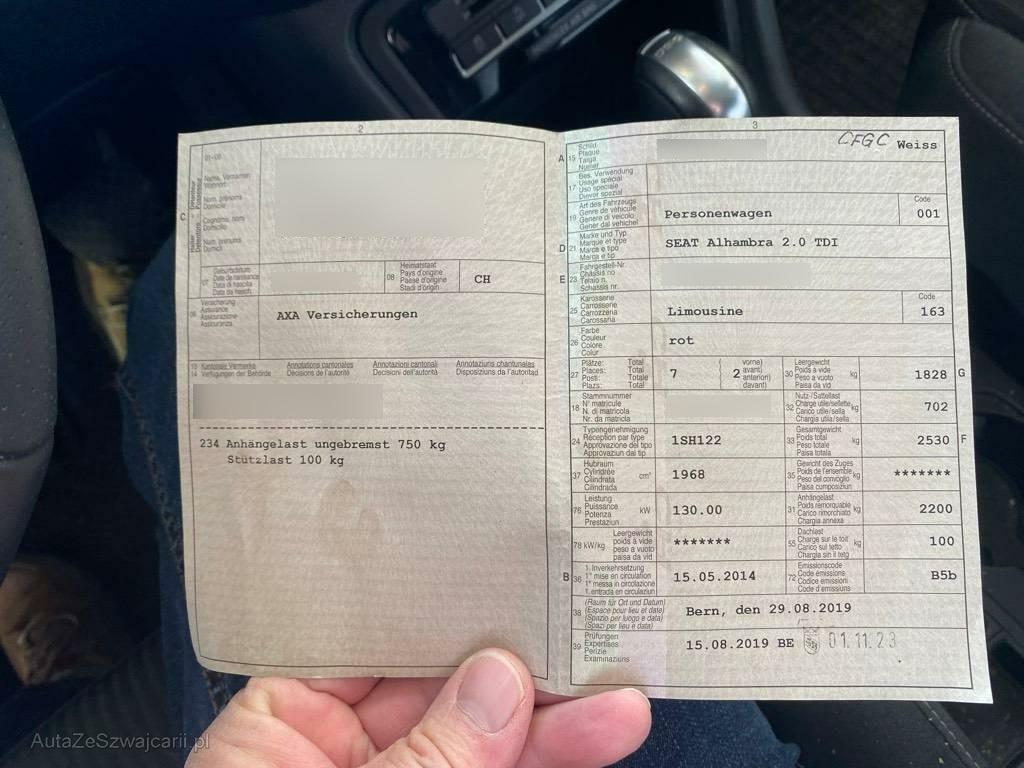 2
01-06
Name, Vornamen
Wohnort
Nom, prénoms
Domicile
Cognome, nomi
Domicilio
Num, prenums
Domicil
C
07
Geburtsdatum
Date de naissance
Data di nascita
Data da nasch.
08
Heimatstaat
Pays d'origine
Paese d'origine
Stadi d'origin
CH
09
Versicherung
Assurance
Assicurazione
Assicuranza
AXA Versicherungen
13 Kantonale Vermerke
14 Verfügungen der Behörde
Annotations cantonales
Décisions de l'autorité
Annotazioni cantonali
Decisioni dell'autorità
Annotaziuns chantunalas
Disposiziuns da l'autoritad
234 Anhängelast ungebremst 750 kg
Stützlast 100 kg
3
A 15
Schild
Plaque
Targa
Numer
CFGC Weiss
17
Bes. Verwendung
Usage spécial
Uso speciale
Diever spezial
19
Art des Fahrzeugs
Genre de véhicule
Genere di veicolo
Gener dal vehichel
Personenwagen
Code
001
D 21
Marke und Typ
Marque et type
Marca e tipo
Marca e tip
SEAT Alhambra 2.0 TDI
E 23
Fahrgestell-Nr.
Châssis no
Telaio n.
Schassis nr.
25
Karosserie
Carrosserie
Carrozzeria
Carossaria
Limousine
Code
163
26
Farbe
Couleur
Colore
Colur
rot
27
Plätze: Total
Places: Total
Posti: Totale
Plazs: Total
7
2
vorne)
avant)
anteriori)
davant)
30
Leergewicht
Poids à vide
Peso a vuoto
Paisa da vid
kg
1828 G
18
Stammnummer
N° matricule
N. di matricola
Nr. da matricla
32
Nutz-/Sattellast
Charge utile/sellette
Carico utile/sella
Chargia utila/sella
kg
702
24
Typengenehmigung
Réception par type
Approvazione del tipo
Approvaziun dal tip
1SH122
33
Gesamtgewicht
Poids total
Peso totale
Paisa totala
kg
2530 F
37
Hubraum
Cylindrée
Cilindrata
Cilindrada
cm³
1968
35
Gewicht des Zuges
Poids de l'ensemble
Peso del convoglio
Paisa cumposiziun
kg
*******
76
Leistung
Puissance
Potenza
Prestaziun
kW
130.00
31
Anhängelast
Poids remorquable
Carico rimorchiato
Chargia annexa
kg
2200
78 kW/kg
Leergewicht
poids à vide
peso a vuoto
paisa da vid
*******
55
Dachlast
Charge sur le toit
Carico sul tetto
Chargia sin il tetg
kg
100
B 36
1. Inverkehrsetzung
1re mise en circulation
1a messa in circolazione
1. entrada en circulaziun
15.05.2014
72
Emissionscode
Code émissions
Codice emissioni
Code d'emissiuns
B5b
38
(Raum für Ort und Datum)
(Espace pour lieu et date)
(Spazio per luogo e data)
(Spazi per lieu e data)
Bern, den 29.08.2019
39
Prüfungen
Expertises
Perizie
Examinaziuns
15.08.2019 BE
01.11.23
AutaZeSzwajcarii.pl